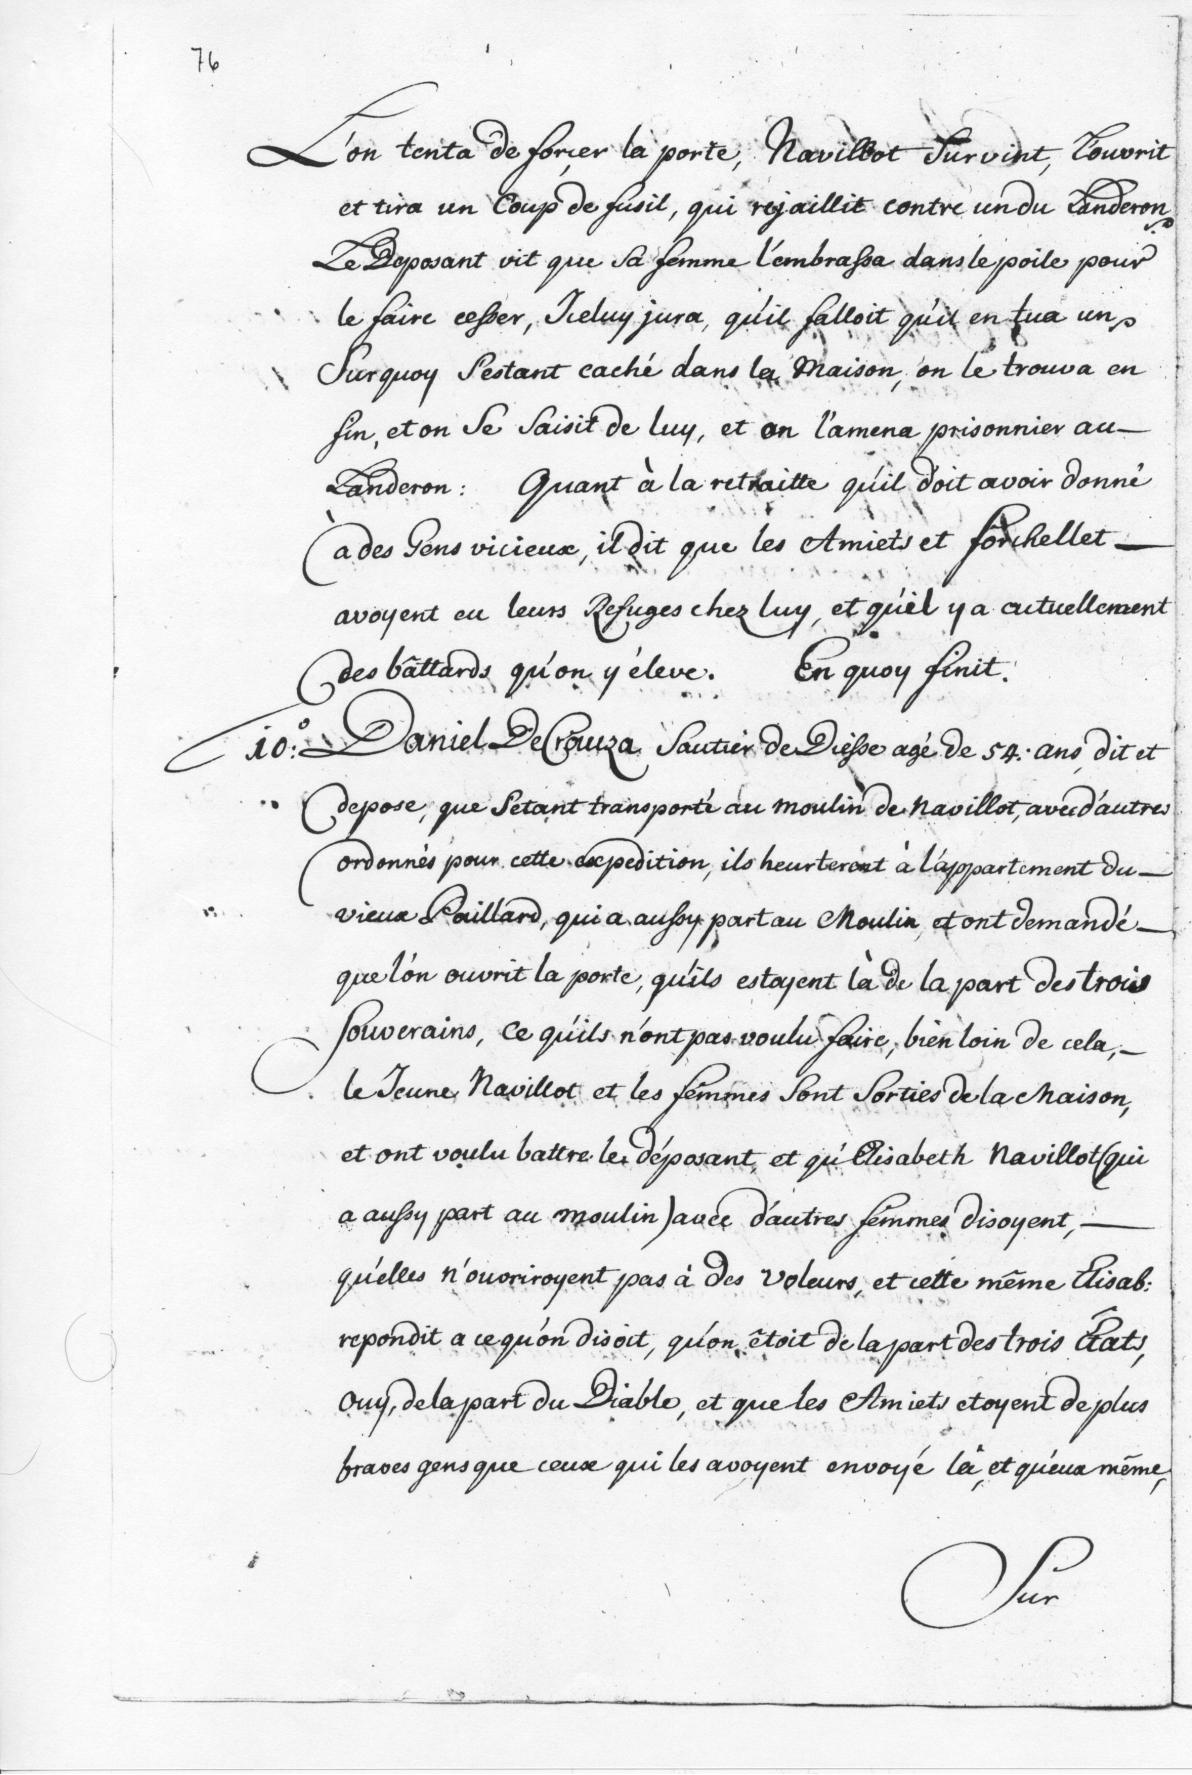 76
L'on tenta de forcer la porte, Navillot Survint, L'ouvrit
et tira un Coup de fusil, qui rejaillit contre un du Landeron
Le Deposant vit que sa femme l'embrassa dans le poile pour
le faire cesser, Iceluy jura, qu'il falloit qu'il en tua un
Surquoy S'estant caché dans la Maison, on le trouva en
fin, et on Se Saisit de luy, et on l'amena prisonnier au
Landeron: Quant à la retraitte qu'il doit avoir donné
à des Gens vicieux, il dit que les Amiets et forchellet
avoyent eu leurs Refuges chez luy, et qu'il y a actuellement
des bâttards qu'on y éleve. En quoy finit.
10.º Daniel DeCrouza Sautier de Diesse agé de 54. ans, dit et
depose, que S'etant transporté au moulin de Navillot, avec d'autres
ordonnés pour cette expedition, ils heurterent à l'appartement du
vieux Paillard, qui a aussy part au Moulin, et ont demandé
que l'on ouvrit la porte, qu'ils estoyent là de la part des trois
Souverains, Ce qu'ils n'ont pas voulu faire, bien loin de cela,
le Jeune Navillot et les femmes Sont Sorties de la Maison,
et ont voulu battre le déposant, et qu'Elisabeth Navillot (qui
a aussy part au moulin) avec d'autres femmes disoyent,
qu'elles n'ouvriroyent pas à des Voleurs, et cette même Elisab:
repondit a ce qu'on disoit, qu'on êtoit de la part des trois États,
Ouy, de la part du Diable, et que les Amiets etoyent de plus
braves gens que ceux qui les avoyent envoyé là, et qu'eux même,
Sur